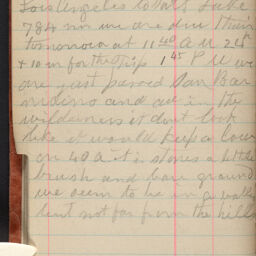 Los Angeles to Salt Lake
784 mi we are due I think
tomorrow at 11 40 A M 24 h
+ 10 m for the Trip 1 45 P M we
are just passed San Bar
nidino and are in the
wilderness it dont look
like it would keep a cow
on 40 A it is stones a little
brush and bare ground
we seem to be in a vally
but not far from the hills